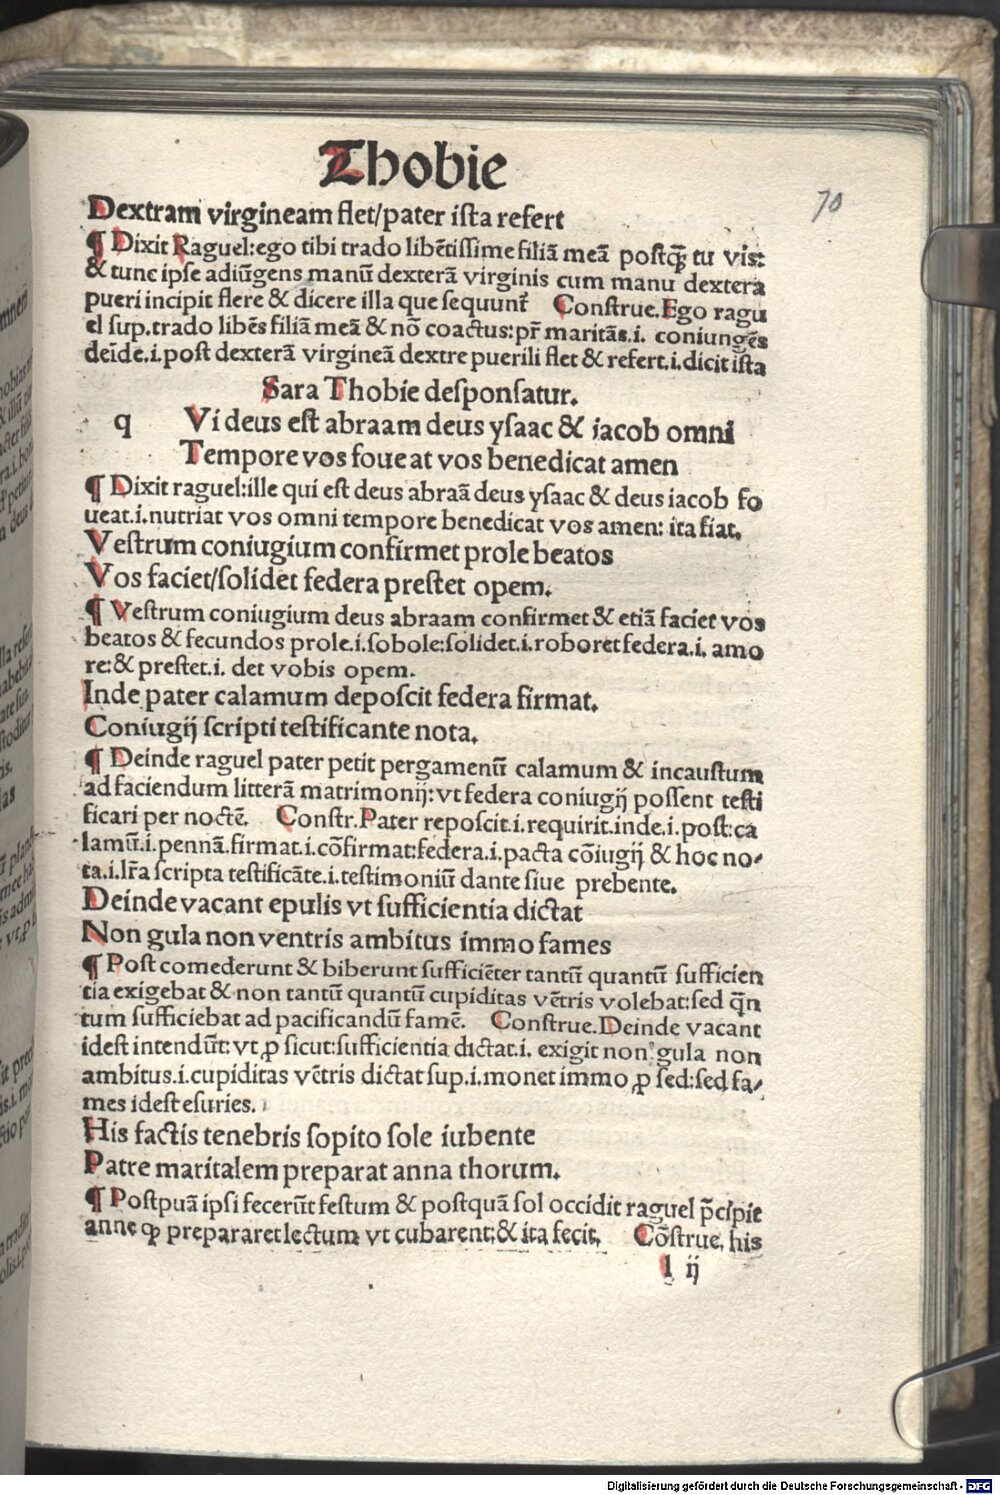 Thobie
70
Dextram virgineam flet/pater ista refert
¶ Dixit Raguel:ego tibi trado libētissime filiā meā postq̄ȝ tu vis:
& tunc ipse adiūgens manū dexterā virginis cum manu dextera
pueri incipit flere & dicere illa que sequunt᷑ Construe.Ego ragu
el sup.trado libēs filiā meā & nō coactus:pr̄ maritās.i. coniungēs
deīde.i.post dexterā virgineā dextre puerili flet & refert.i.dicit ista
Sara Thobie desponsatur.
q Vi deus est abraam deus ysaac & iacob omni
Tempore vos foueat vos benedicat amen
¶ Dixit raguel:ille qui est deus abraā deus ysaac & deus iacob fo
ueat.i.nutriat vos omni tempore benedicat vos amen: ita fiat.
Vestrum coniugium confirmet prole beatos
Vos faciet/solidet federa prestet opem.
¶ Vestrum coniugium deus abraam confirmet & etiā faciet vos
beatos & fecundos prole.i.sobole:solidet.i.roboret federa.i. amo
re:& prestet.i. det vobis opem.
Inde pater calamum deposcit federa firmat.
Coniugij scripti testificante nota.
¶ Deinde raguel pater petit pergamenū calamum & incaustum
ad faciendum litterā matrimonij:vt federa coniugij possent testi
ficari per noctē. Constr.Pater reposcit.i.requirit.inde.i.post:ca
lamū.i.pennā.firmat.i.cōfirmat:federa.i.pacta cōiugij & hoc no⸗
ta.i.lr̄a scripta testificāte.i.testimoniū dante siue prebente.
Deinde vacant epulis vt sufficientia dictat
Non gula non ventris ambitus immo fames
¶ Post comederunt & biberunt sufficiēter tantū quantū sufficien
tia exigebat & non tantū quantū cupiditas vētris volebat:sed q̄n
tum sufficiebat ad pacificandū famē. Construe.Deinde vacant
idest intendūt:vt ꝓ sicut:sufficientia dictat.i. exigit non gula non
ambitus.i.cupiditas vētris dictat sup.i.monet immo ꝓ sed:sed fa⸗
mes idest esuries.
His factis tenebris sopito sole iubente
Patre maritalem preparat anna thorum.
¶ Postquā ipsi fecerūt festum & postquā sol occidit raguel p̄cipit
anne ꝙ prepararet lectum vt cubarent:& ita fecit. Cōstrue, his
l ij
Digitalisierung gefördert durch die Deutsche Forschungsgemeinschaft - DFG